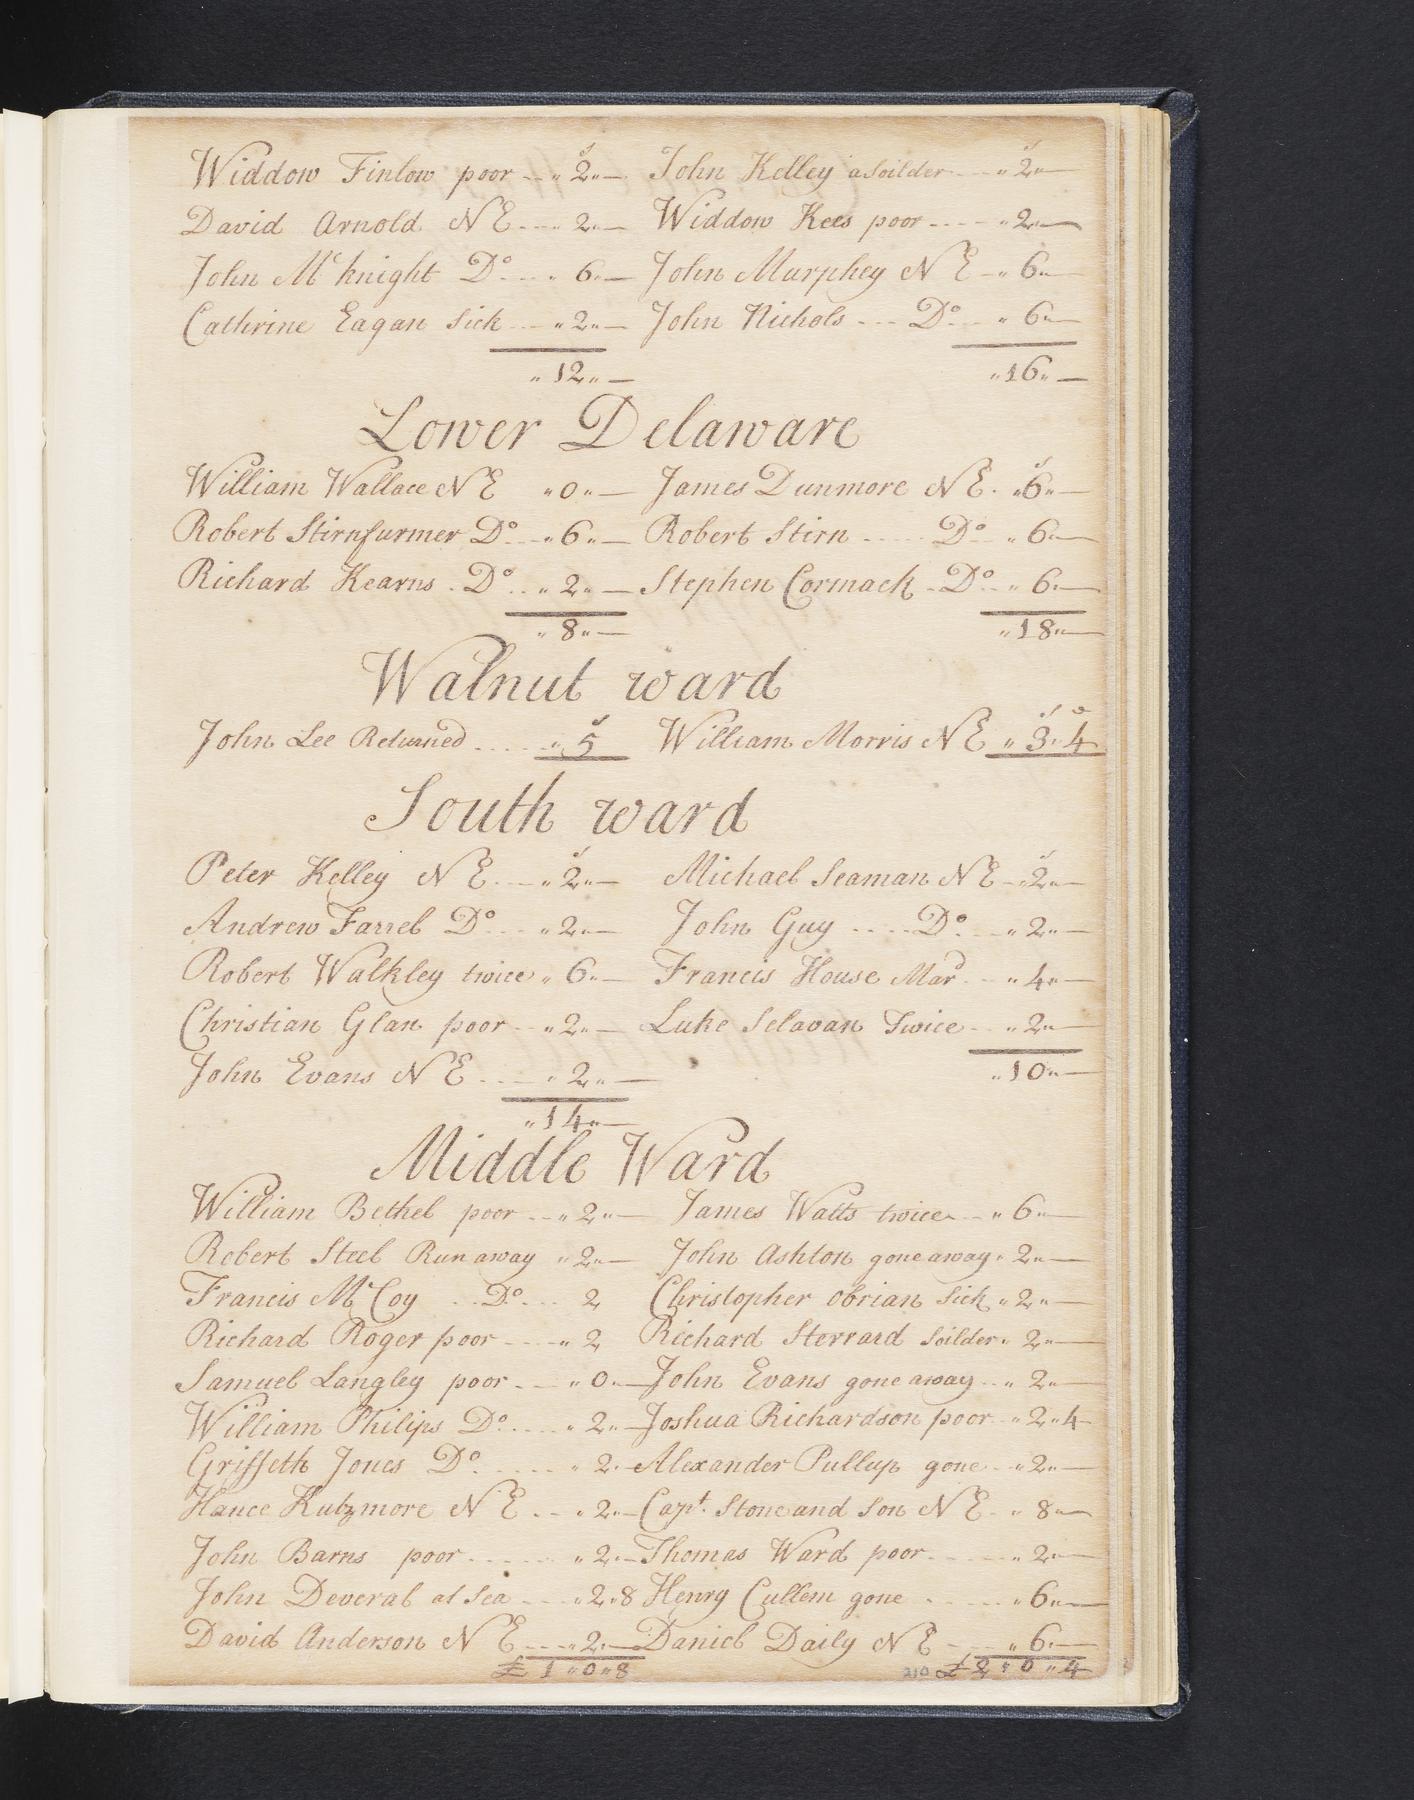 s s
Widdow Finlow poor --- „ 2„— John Kelley a Soilder --- „ 2„—
David Arnold N E --- 2„— Widdow Kees poor ---- „ 2„—
John Mc knight Do --- „ 6„— John Murphey N E -- „ 6„—
Cathrine Eagan Sick --- „ 2„— John Nichols --- Do -- „ 6„—
„ 12„— „ 16„—
Lower Delaware
s
William Wallace N E „ 0„— James Dunmore N E . „ 6„—
Robert Stirnfurmer Do --- „ 6„— Robert Stirn ----- Do -- „ 6„—
Richard Kearns . Do .. „ 2„— Stephen Cormack . Do .. „ 6„—
„ 8„— „ 18„—
Walnut ward
s s D
John Lee Returned ----- „ 5 William Morris N E „ 3„ 4
South ward
s s
Peter Kelley N E --- „ 2„— Michael Seaman N E -- „ 2„—
Andrew Farrel Do --- „ 2„— John Guy ---- Do --- „ 2„—
Robert Walkley twice „ 6„— Francis House Mard -- „ 4„—
Christian Glan poor -- „ 2„— Luke Selavan Twice -- „ 2„—
John Evans N E ---- „ 2„— „ 10„—
„ 14„—
Middle Ward
William Bethel poor --- „ 2„— James Watts twice --- „ 6„—
Robert Steel Run away „ 2„— John Ashton gone away „ 2„—
Francis Mc Coy .. Do --- 2 Christopher Obrian Sick „ 2„—
Richard Roger poor ---- „ 2 Richard Sterrard Soilder „ 2„—
Samuel Langley poor --- „ 0„— John Evans gone away -- „ 2„—
William Philips Do ---- „ 2„— Joshua Richardson poor -- „ 2„4
Griffeth Jones Do ----- „ 2„— Alexander Pullup gone -- „ 2„—
Hance Kutzmore N E -- „ 2„— Capt. Stone and Son N E - „ 8„—
John Barns poor ------ „ 2„— Thomas Ward poor ----- „ 2„—
John Deveral at Sea ---- „ 2„8 Henry Cullem gone ----- „ 6„—
David Anderson N E --- „ 2„— Daniel Daily N E --- „ 6„—
£ 1 „ 0 „ 8 210 £ 2 „ 0 „ 4